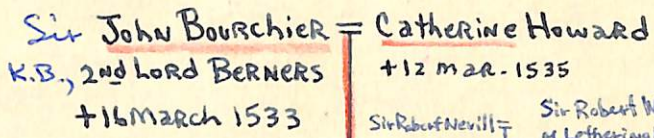 Sir John Bourchier = Catherine Howard
K.B., 2nd Lord Berners
+12 mar. 1535
+16 March 1533
Sir Robert Nevill =
Sir Robert
of